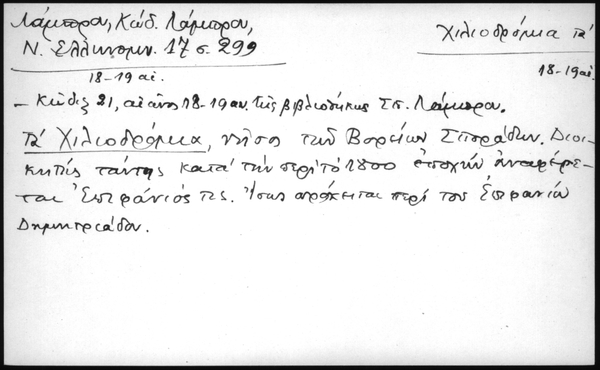 Λάμπρου, Κώδ. Λάμπρου,
Ν. Ελληνομν. 17 σ. 299
Χιλιοδρόμια τά
18-19 αἰ.
18-19 αἰ.
– Κώδιξ 21, αἰῶνος 18-19 ου. τῆς βιβλιοθήκης Σπ. Λάμπρου.
Τά Χιλιοδρόμια, νῆσος τῶν Βορείων Σποράδων. Διοι-
κητής ταύτης κατά τήν περί τό 1800 ἐποχήν ἀναφέρε-
ται Ἐπιφάνιός τις. Ἴσως πρόκειται περί του Ἐπιφανίου
Δημητριάδου.